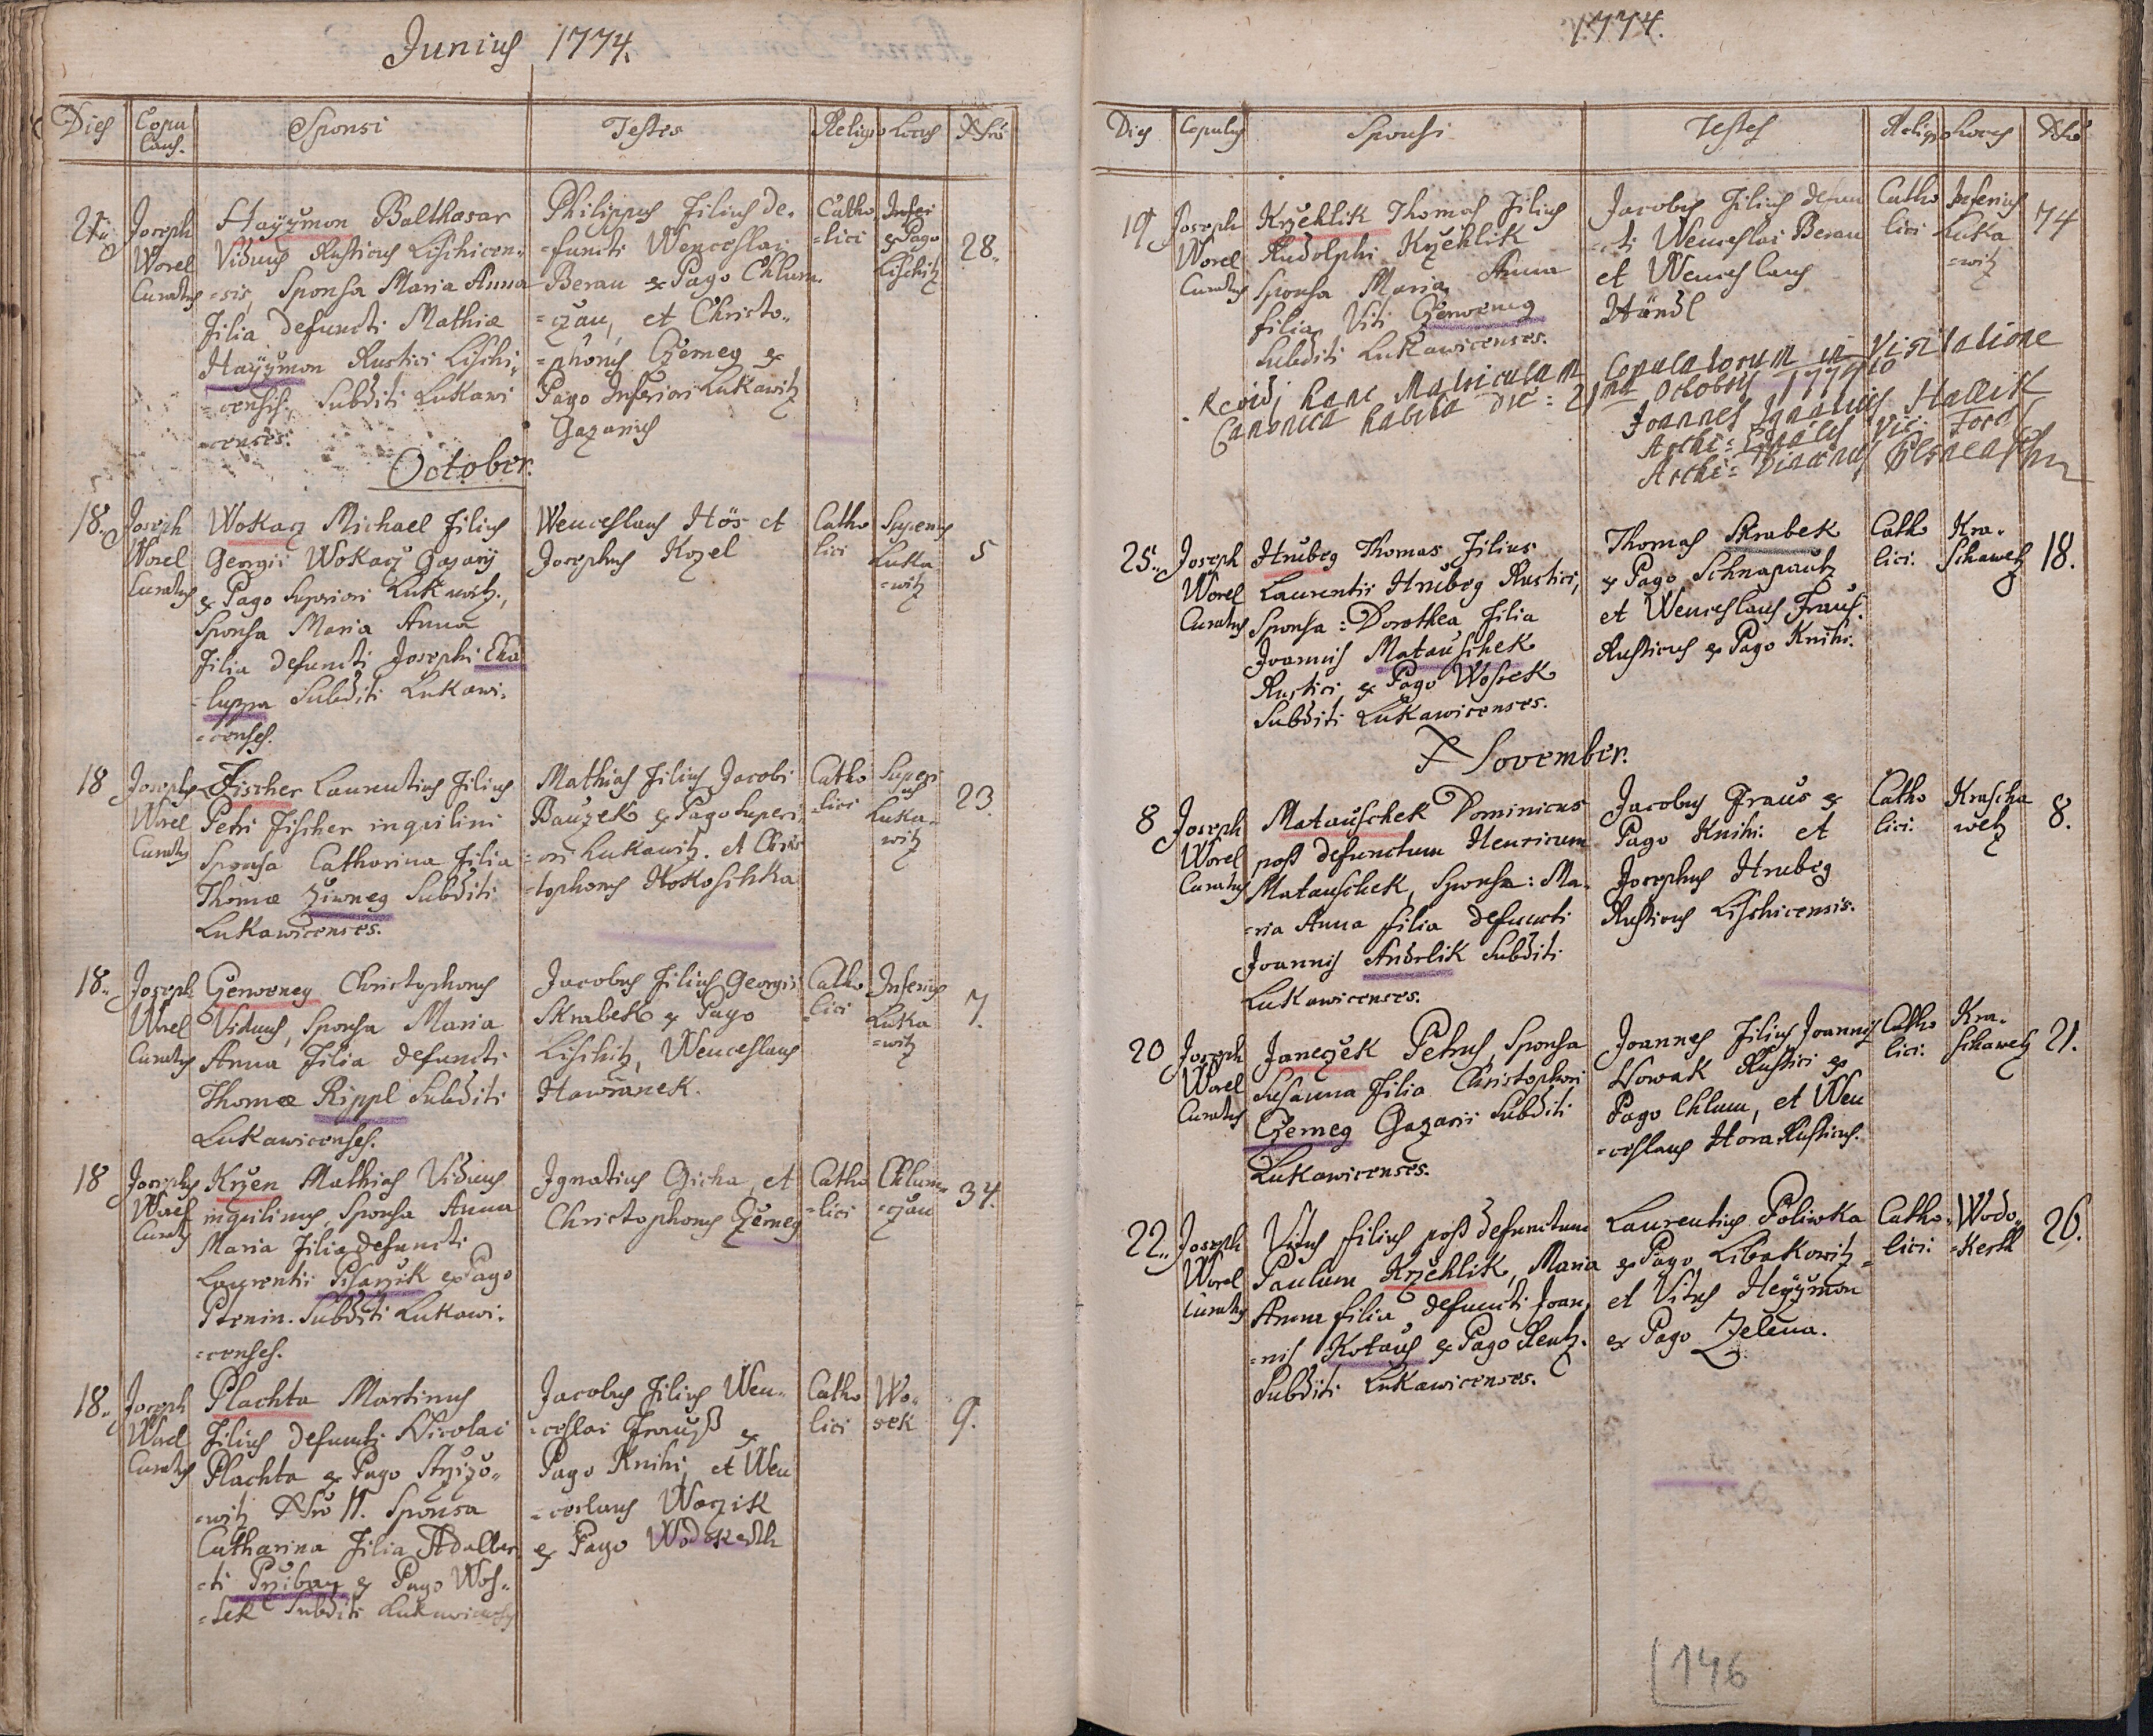 Junius 1774.
Dies Copulans. Sponsi Testes Religio Locus Nro
21. Joseph Worel Curatus
Hayžmon Balthasar
Viduus Rusticus Lischicen-
=sis, Sponsa Maria Anna
Filia defuncti Mathiæ
Hayžmon Rustici Lischi-
=censis, Subditi Lukawi
=censes.
Philippus Filius de-
=functi Wenceslai
Berau ex Pago Chlum-
=czan, et Christo-
=phorus Czerney ex
Pago Inferiori Lukawitz
Gazarius
Catho
=lici
Inferi
ex Pago
Lischitz
28.
October.
18. Joseph Worel Curatus
Wokacz Michael Filius
Georgii Wokacz Gazarij
ex Pago Superiori Lukawitz,
Sponsa Maria Anna
Filia defuncti Josephi Cha
=luppa Subditi Lukawi-
=censes.
Wenceslaus Hös et
Josephus Kozel
Catho
lici
Superius
Luka
=witz
5
18 Josephus Worel Curatus
Fischer Laurentius Filius
Petri Fischer inquilini
Sponsa Catharina Filia
Thomæ Živney Subditi
Lukawicenses.
Mathias Filius Jacobi
Bauzek ex Pago Superi-
=ori Lukawitz. et Chris
=tophorus Kokoschka
Catho
=lici
Superi
us
Luka-
witz
23.
18. Joseph Worel Curatus
Czerweney Christophorus
Viduus, Sponsa Maria
Anna Filia defuncti
Thomæ Rippl Subditi
Lukawicenses.
Jacobus Filius Georgii
Skrabek ex Pago
Lischitz, Wenceslaus
Hawranek.
Catho
lici
Inferius
Luka
=witz
7.
18 Josephus Worel Curatus
Krzen Mathias Viduus
inquilinus, Sponsa Anna
Maria Filia defuncti
Laurentii Pisarzik ex Pago
Ptenin. Subditi Lukawi-
=censes.
Ignatius Cicha, et
Christophorus Czerney
Catho
=lici
Chlum-
=czan
34.
18. Joseph Worel Curatus
Plachta Martinus
Filius defuncti Nicolai
Plachta ex Pago Strziżo-
=witz Nro 11. Sponsa
Catharina Filia Adalber
=ti Przibay ex Pago Wos-
=sek Subditi Lukawicenses
Jacobus Filius Wen-
=ceslai Frauß ex
Pago Knihi, et Wen
=ceslaus Waczik
ex Pago Wodokerth
Catho
lici
Wo-
sek
9.
1774.
Dies Copulans Sponsi Testes Religio Locus Nro
19 Joseph Worel Curatus
Krzehlik Thomas Filius
Rudolphi Krzehlik
Sponsa Maria Anna
filia Viti Czerweney
Subditi Lukawicenses.
Jacobus Filius defun
=cti Wenceslai Berau
et Wenceslaus
Händl
Catho
lici
Inferius
Luka
=witz
74
Revidi hanc Matriculam Copulatorum in Visitatione
Canonica habita die: 21ma Octobris 1774to
Joannes Ignatius Hallik
Archi: Vic: For:
Archi: Diaconus Plsnensis
25. Joseph Worel Curatus
Hrubey Thomas Filius
Laurentii Hrubey Rustici,
Sponsa: Dorothea Filia
Joannis Matauschek
Rustici ex Pago Wosek
Subditi Lukawicenses.
Thomas Skrabek
ex Pago Schnapautz
et Wenceslaus Fraus.
Rusticus ex Pago Knihi.
Catho
lici.
Kra-
schawetz
18.
November.
8 Joseph Worel Curatus
Matauschek Dominicus
post defunctum Henricum
Matauschek, Sponsa: Ma-
=ria Anna filia defuncti
Joannis Andrlik Subditi
Lukawicenses.
Jacobus Fraus ex
Pago Knihi. et
Josephus Hrubey
Rusticus Lischicensis.
Catho
lici.
Krascha
wetz
8.
20 Joseph Worel Curatus
Janeczek Petrus, Sponsa
Susanna Filia Christophori
Czerney Gazarii Subditi
Lukawicenses.
Joannes Filius Joannis
Nowak Rustici ex
Pago Chlum, et Wen
=ceslaus Hora Rusticus.
Catho
lici.
Kra-
schawetz
21.
22. Joseph Worel Curatus
Vitus filius post defunctum
Paulum Krzehlik, Maria
Anna filia defuncti Joan-
=nis Kotaus ex Pago Rentz.
Subditi Lukawicenses.
Laurentius Poliwka
ex Pago Libakowitz
et Vitus Heyžmon
ex Pago Zelena.
Catho-
lici.
Wodo-
=kerth
26.
146